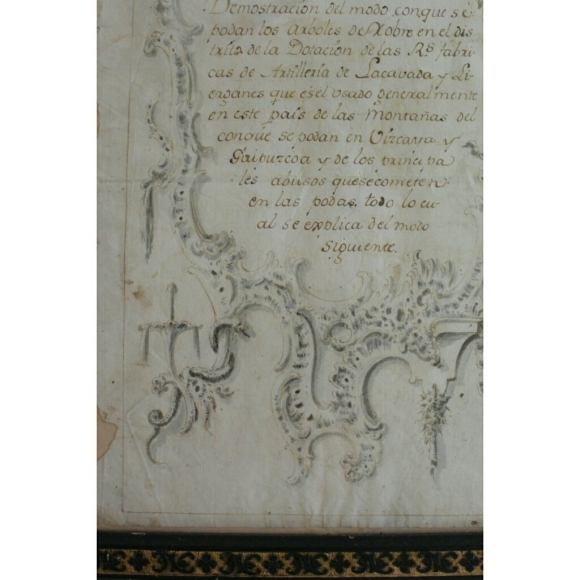 Demostracion del modo conque se
podan los Arboles de Robre en el dis
trito de la Dotacion de las Rs. fabri
cas de Artilleria de Lacavada y Li
erganes que es el usado generalmente
en este pais de las Montañas del
conque se podan en Vizcaya y
Guipuzcoa y de los principa
les abusos que se cometen
en las podas, todo lo cu
al se explica del modo
siguiente.